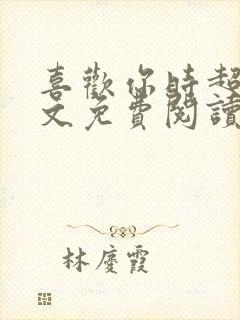 喜歡你時超
文免費閱讀
林慶霞